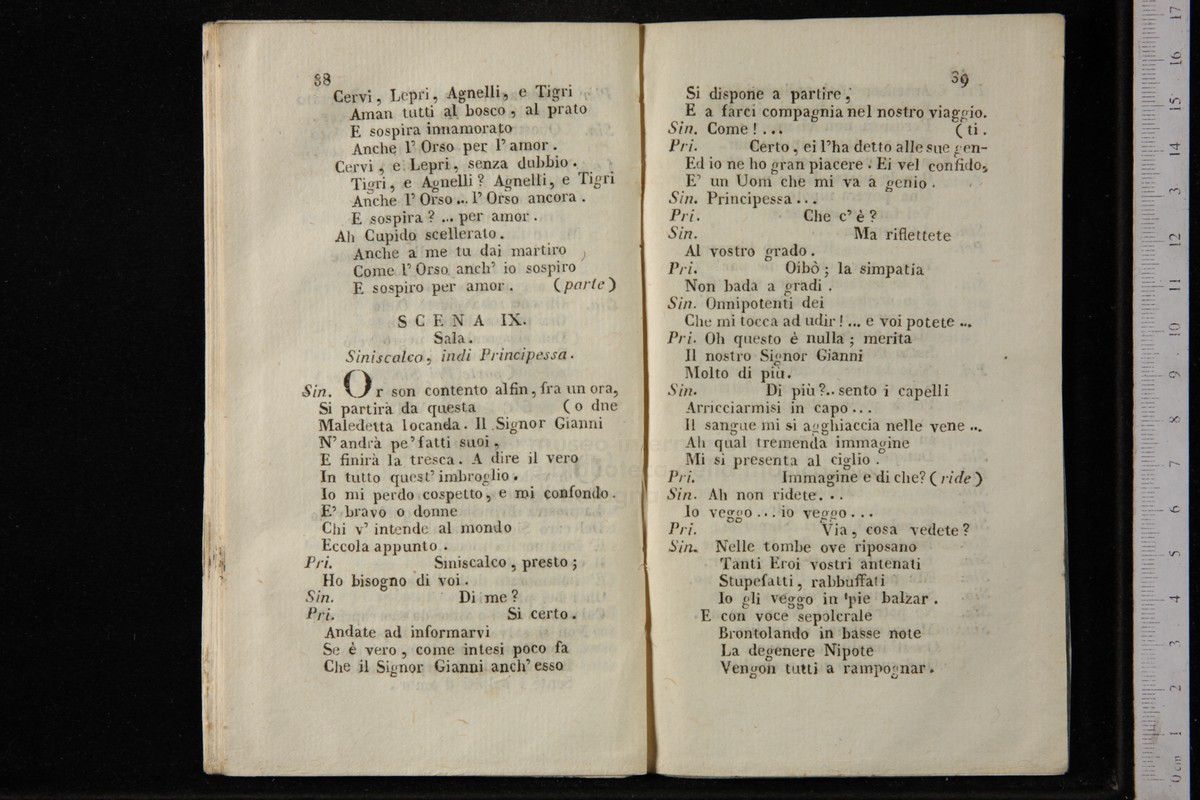 38
Cervi, Lepri, Agnelli, e Tigri
Aman tutti al bosco, al prato
E sospira innamorato
Anche l'Orso per l'amor.
Cervi, e Lepri, senza dubbio.
Tigri, e Agnelli? Agnelli, e Tigri
Anche l'Orso... l'Orso ancora.
E sospira? ... per amor.
Ah Cupido scellerato.
Anche a me tu dai martiro
Come l'Orso anch'io sospiro
E sospiro per amor. (parte)
SCENA IX.
Sala.
Siniscalco, indi Principessa.
Sin. Or son contento alfin, fra un ora,
Si partirà da questa (o dne
Maledetta locanda. Il Signor Gianni
N'andrà pe'fatti suoi,
E finirà la tresca. A dire il vero
In tutto quest'imbroglio.
Io mi perdo cospetto, e mi confondo.
E' bravo o donne
Chi v'intende al mondo
Eccola appunto.
Pri. Siniscalco, presto;
Ho bisogno di voi.
Sin. Di me?
Pri. Si certo.
Andate ad informarvi
Se è vero, come intesi poco fa
Che il Signor Gianni anch'esso
39
Si dispone a partire,
E a farci compagnia nel nostro viaggio.
Sin. Come!... (ti.
Pri. Certo, ei l'ha detto alle sue gen-
Ed io ne ho gran piacere. Ei vel confido,
E' un Uom che mi va a genio.
Sin. Principessa...
Pri. Che c'è?
Sin. Ma riflettete
Al vostro grado.
Pri. Oibò; la simpatia
Non bada a gradi.
Sin. Onnipotenti dei
Che mi tocca ad udir!... e voi potete...
Pri. Oh questo è nulla; merita
Il nostro Signor Gianni
Molto di più.
Sin. Di più?.. sento i capelli
Arricciarmisi in capo...
Il sangue mi si agghiaccia nelle vene...
Ah qual tremenda immagine
Mi si presenta al ciglio.
Pri. Immagine e di che? (ride)
Sin. Ah non ridete...
Io veggo... io veggo...
Pri. Via, cosa vedete?
Sin. Nelle tombe ove riposano
Tanti Eroi vostri antenati
Stupefatti, rabbuffati
Io gli veggo in 'pie balzar.
E con voce sepolcrale
Brontolando in basse note
La degenere Nipote
Vengon tutti a rampognar.